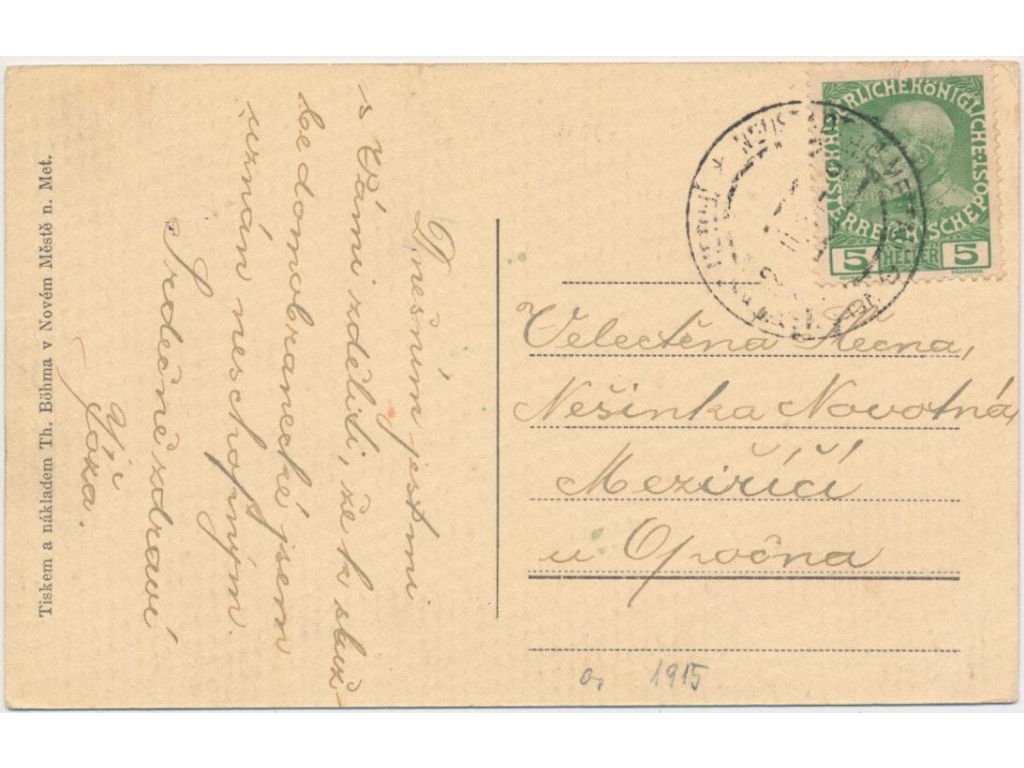 Tiskem a nákladem Th. Böhma v Novém Městě n. Met.
Dnešním jest mi
s Vámi zděliti, že k služ-
be domobranecké jsem
uznán neschopným.
Srdečně zdraví
Jóža.
KAISERLICHE KÖNIGLICHE
ÖSTERREICHISCHE POST
5 HELLER 5
Velectěná Slečna,
Nešinka Novotná,
Meziříčí
u Opočna
1915